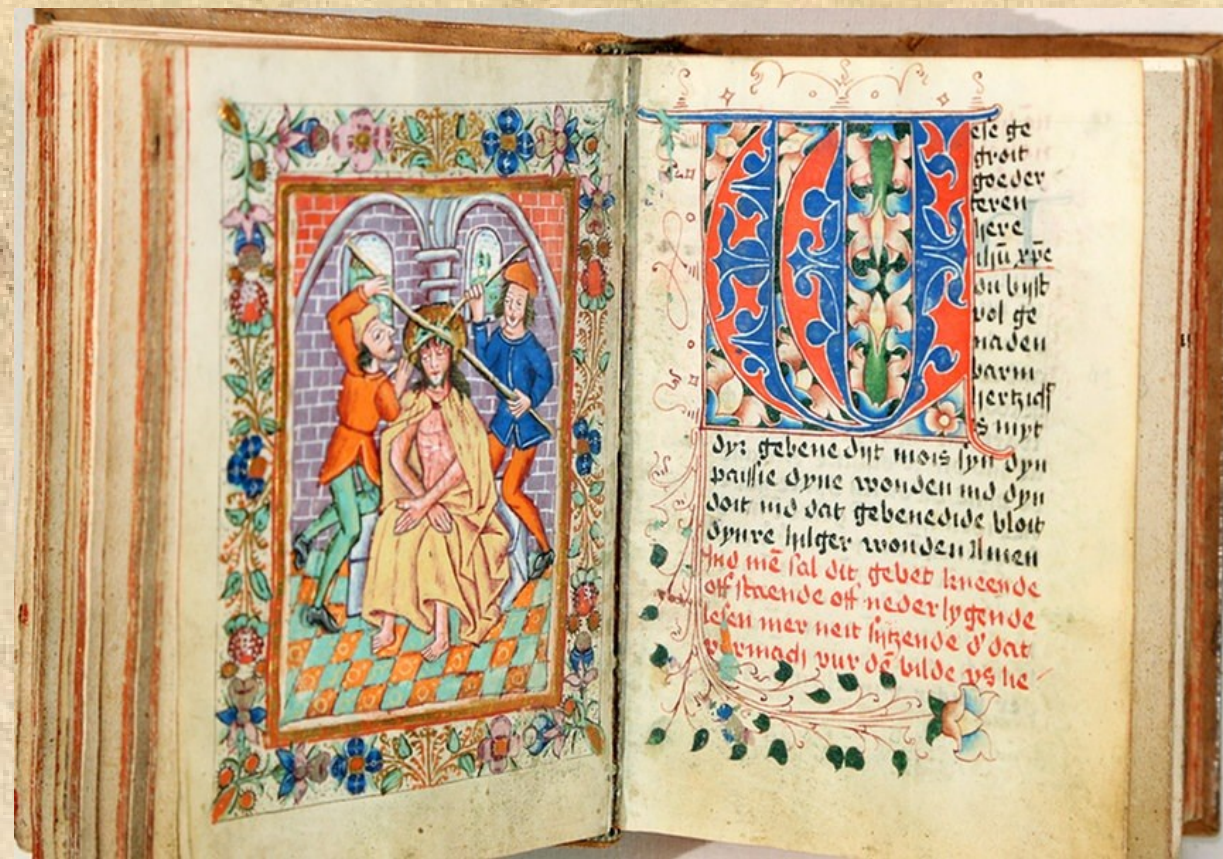 Wese ge
groit
goeder
teren
here
ihū xp̄e
du byst
vol ge
naden
barm
hertzich
s myt
dyr gebenedijt mois syn dyn
passie dyne wonden ind dyn
doit ind dat gebenedide bloit
dynre hilger wonden Amen
Ind mē sal dit gebet kneende
off staende off neder lygende
lesen mer neit sytzende d' dat
vermach vur dē bilde vs he